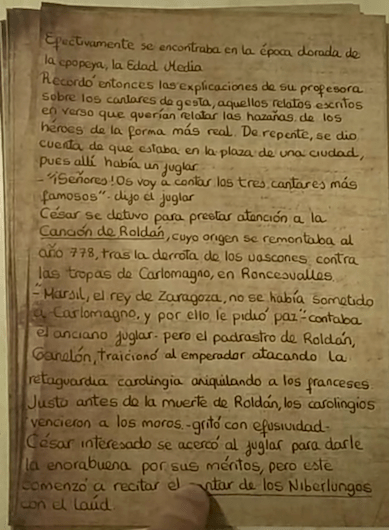 Efectivamente se encontraba en la época dorada de
la epopeya, la Edad Media.
Recordó entonces las explicaciones de su profesora
sobre los cantares de gesta, aquellos relatos escritos
en verso que querían relatar las hazañas de los
héroes de la forma más real. De repente, se dio
cuenta de que estaba en la plaza de una ciudad,
pues allí había un juglar
-"¡Señores! Os voy a contar los tres cantares más
famosos"- dijo el juglar
César se detuvo para prestar atención a la
Canción de Roldán, cuyo origen se remontaba al
año 778, tras la derrota de los vascones contra
las tropas de Carlomagno, en Roncesvalles.
-"Marsil, el rey de Zaragoza, no se había sometido
a Carlomagno, y por ello le pidió paz"- contaba
el anciano juglar- pero el padrastro de Roldán,
Ganelón, traicionó al emperador atacando la
retaguardia carolingia aniquilando a los franceses.
Justo antes de la muerte de Roldán, los carolingios
vencieron a los moros.- gritó con efusividad-
César interesado se acercó al juglar para darle
la enorabuena por sus méritos, pero este
comenzó a recitar el de los Niberlungos
con el laúd.